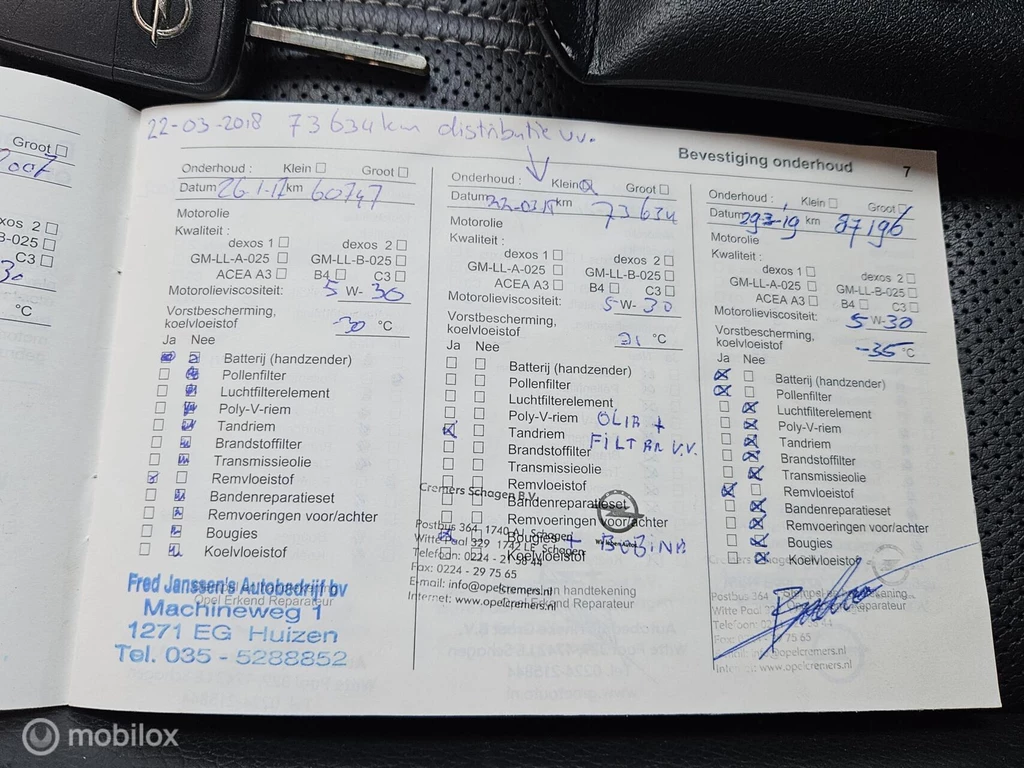 Groot
2007
dexos 2
LL-B-025
C3
30
°C
22-03-2018 73634km distributie vv.
Bevestiging onderhoud 7
Onderhoud : Klein Groot
Datum 26-1-17 km 60747
Motorolie
Kwaliteit :
dexos 1 dexos 2
GM-LL-A-025 GM-LL-B-025
ACEA A3 B4 C3
Motorolieviscositeit: 5 W- 30
Vorstbescherming,
koelvloeistof -30 °C
Ja Nee
Batterij (handzender)
Pollenfilter
Luchtfilterelement
Poly-V-riem
Tandriem
Brandstoffilter
Transmissieolie
Remvloeistof
Bandenreparatieset
Remvoeringen voor/achter
Bougies
Koelvloeistof
Fred Janssen's Autobedrijf bv
Opel Erkend Reparateur
Machineweg 1
1271 EG Huizen
Tel. 035 - 5288852
Onderhoud : Klein Groot
Datum 22-03-18 km 73634
Motorolie
Kwaliteit :
dexos 1 dexos 2
GM-LL-A-025 GM-LL-B-025
ACEA A3 B4 C3
Motorolieviscositeit: 5 W- 30
Vorstbescherming,
koelvloeistof °C
Ja Nee
Batterij (handzender)
Pollenfilter
Luchtfilterelement
Poly-V-riem
Tandriem
Brandstoffilter
OLIE +
FILTER V.V.
Transmissieolie
Remvloeistof
Bandenreparatieset
Remvoeringen voor/achter
Bougies + BOBINE
Koelvloeistof
Cremers Schagen B.V.
Postbus 364, 1740 AJ Schagen
Witte Paal 329 1742 LE Schagen
Telefoon: 0224 - 21 58 44
Fax: 0224 - 29 75 65
E-mail: info@opelcremers.nl
Internet: www.opelcremers.nl
en handtekening
Erkend Reparateur
Onderhoud : Klein Groot
Datum 29-3-19 km 87196
Motorolie
Kwaliteit :
dexos 1 dexos 2
GM-LL-A-025 GM-LL-B-025
ACEA A3 B4 C3
Motorolieviscositeit: 5 W- 30
Vorstbescherming,
koelvloeistof -35 °C
Ja Nee
Batterij (handzender)
Pollenfilter
Luchtfilterelement
Poly-V-riem
Tandriem
Brandstoffilter
Transmissieolie
Remvloeistof
Bandenreparatieset
Remvoeringen voor/achter
Bougies
Koelvloeistof
Stempel en handtekening
Reparateur
Postbus 364
Witte Paal
Telefoon: 0224
75 65
info@opelcremers.nl
www.opelcremers.nl
mobilox